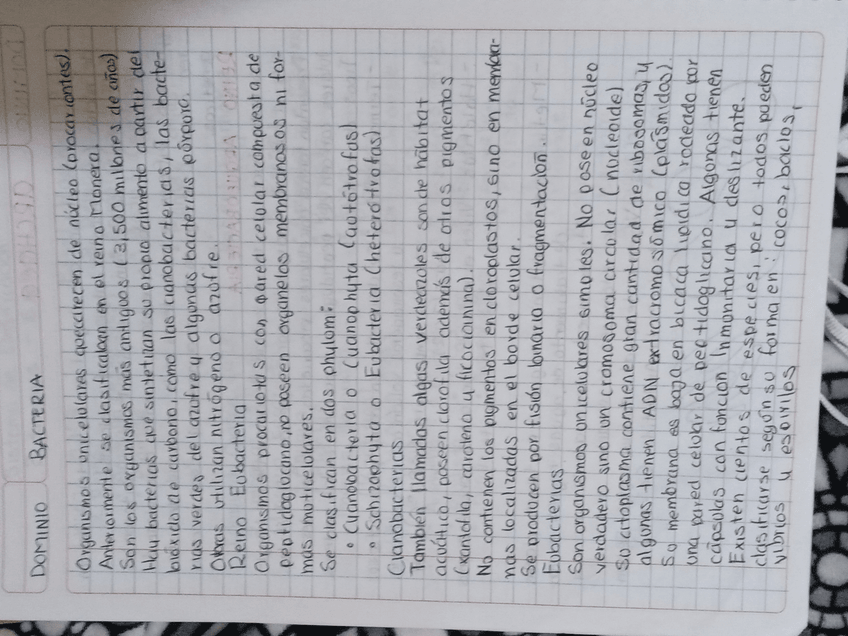 DOMINIO BACTERIA
Organismos unicelulares que carecen de núcleo (procariontes).
Anteriormente se clasificaban en el reino Monera.
Son los organismos más antiguos (3,500 millones de años)
Hay bacterias que sintetizan su propio alimento a partir del
bióxido de carbono, como las cianobacterias, las bacte-
rias verdes del azufre y algunas bacterias púrpura.
Otras utilizan nitrógeno o azufre.
Reino Eubacteria
Organismos procariotas con pared celular compuesta de
peptidoglucano, no poseen organelos membranosos ni for-
mas multicelulares.
Se clasifican en dos phylom:
• Cyanobacteria o Cyanophyta (autótrofas)
• Schizophyta o Eubacteria (heterótrofas)
Cianobacterias
También llamadas algas verdeazules son de hábitat
acuático, poseen clorofila además de otros pigmentos
(xantofila, caroteno y ficocianina).
No contienen los pigmentos en cloroplastos, sino en membra-
nas localizadas en el borde celular.
Se producen por fisión binaria o fragmentación.
Eubacterias
Son organismos unicelulares simples. No poseen núcleo
verdadero sino un cromosoma circular (nucleoide)
Su citoplasma contiene gran cantidad de ribosomas, y
algunas tienen ADN extracromosómico (plásmidos).
Su membrana es baja en bicaca lipídica rodeado por
una pared celular de peptidoglicano. Algunas tienen
cápsulas con función inmunitaria y deslizante.
Existen cientos de especies, pero todos pueden
clasificarse según su forma en: cocos, bacilos,
vibrios y espirilos